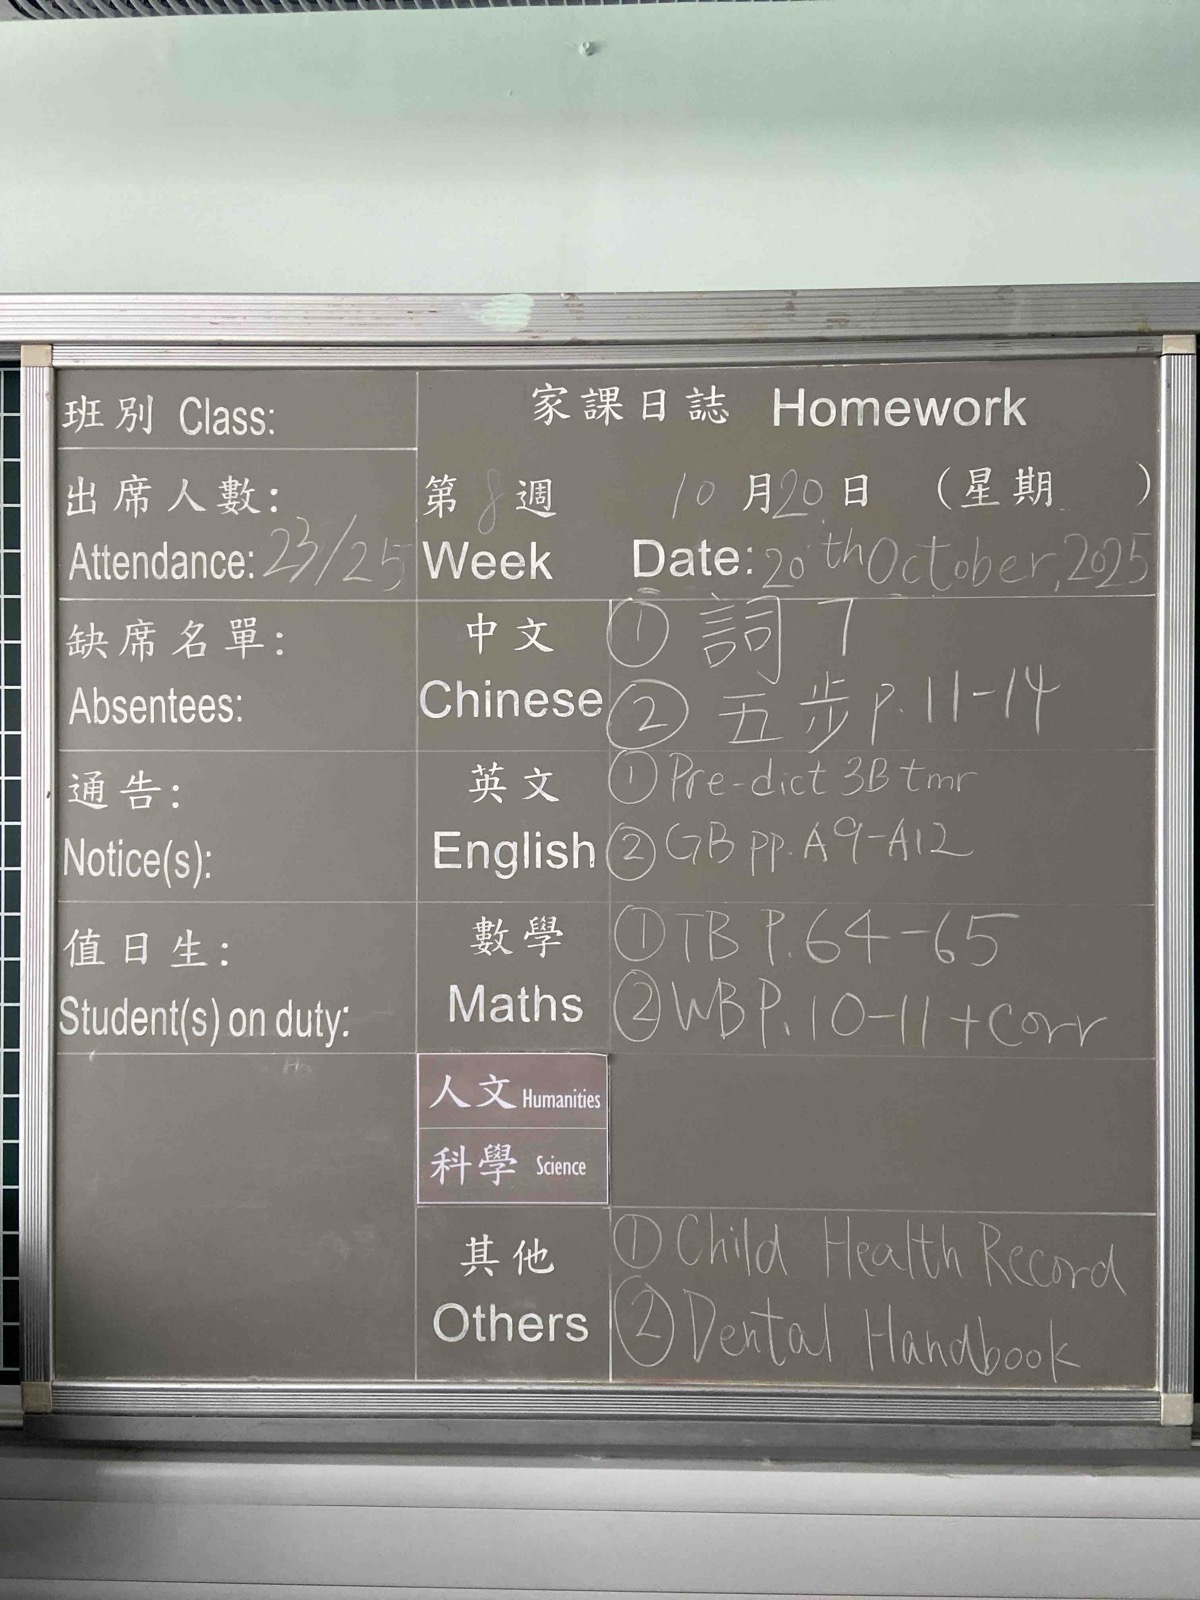 班別 Class:
家課日誌 Homework
出席人數:
Attendance: 23/25
第8週 10月20日 (星期 )
Week Date: 20th October, 2025
缺席名單:
Absentees:
中文
Chinese
① 詞7
② 五步p.11-14
通告:
Notice(s):
英文
English
① Pre-dict 3B tmr
② GB pp. A9-A12
值日生:
Student(s) on duty:
數學
Maths
① TB P. 64-65
② WB P. 10-11 + corr
人文 Humanities
科學 Science
其他
Others
① Child Health Record
② Dental Handbook